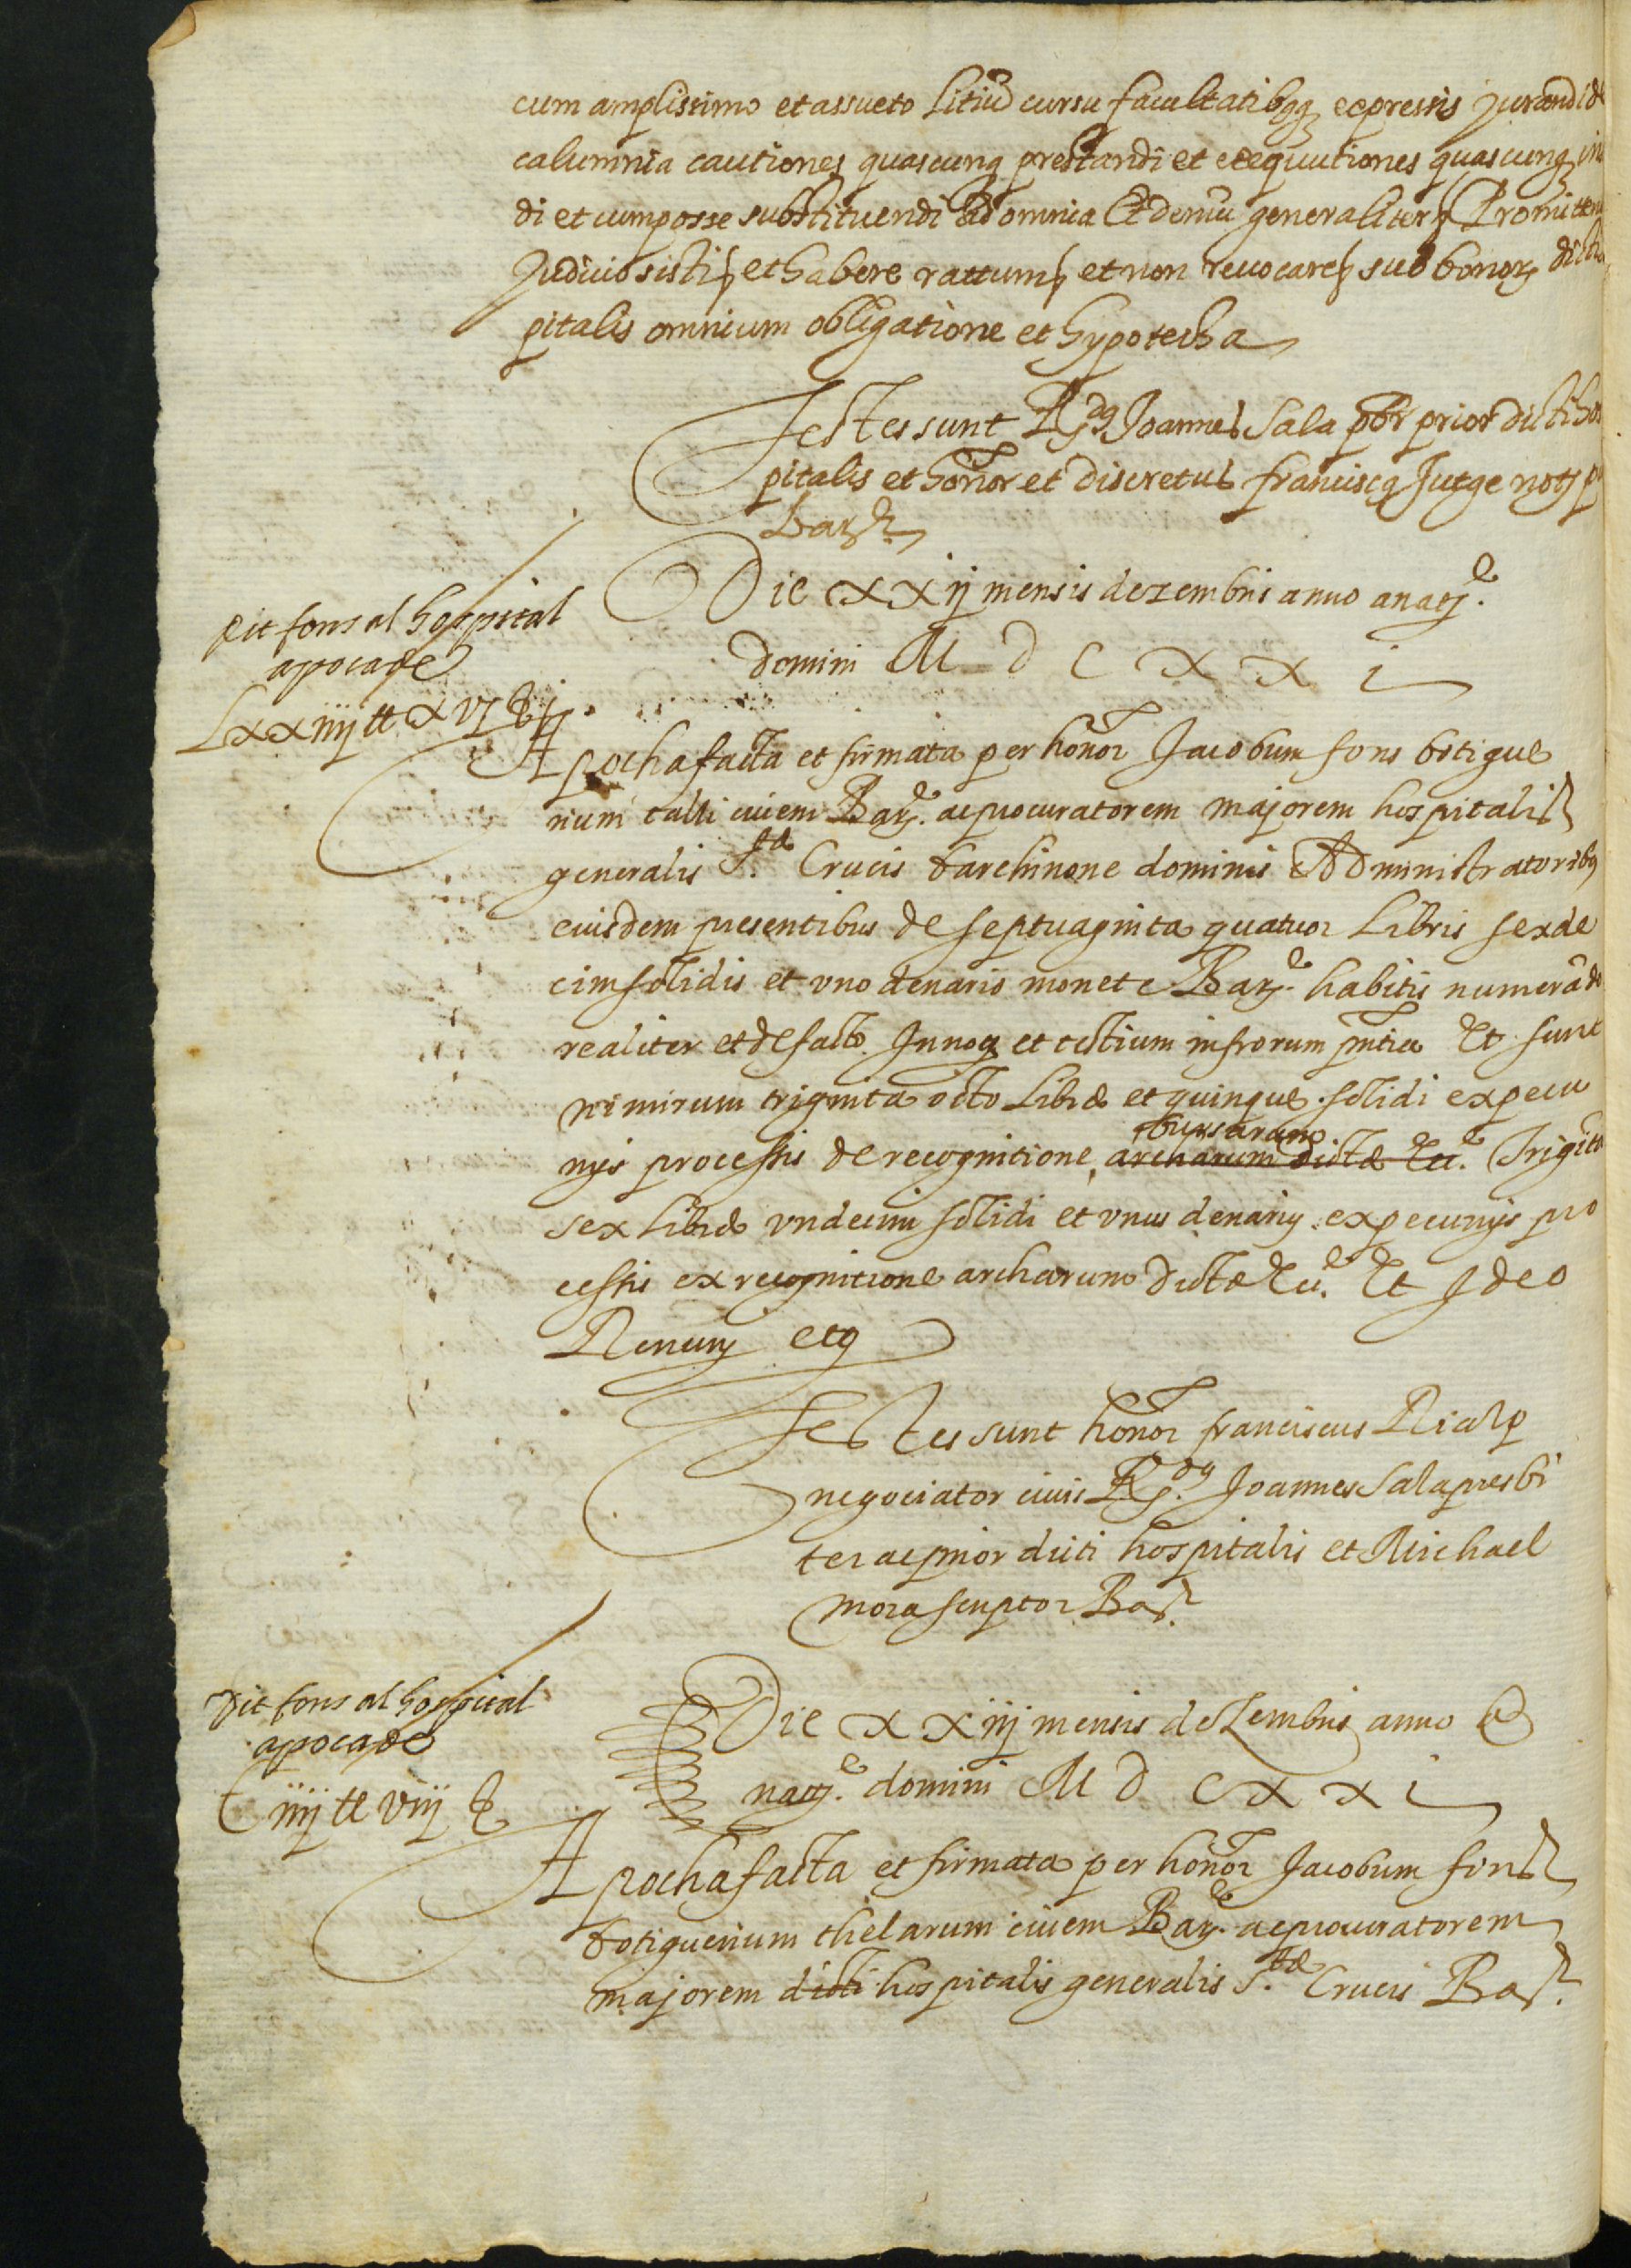 cum amplissimo et assueto Litiũ cursu facultatibqȝ expressis Jurandi de
calumnia cautiones quascunq prestandi et exequutiones quascunqȝ in
di et cum posse substituendi Ad omnia Et demũ generaliter Promitten
Judicio sisti et habere rattum et non revocare sub bonorȝ dicti
pitalis omnium obligatione et hypotecha
Testes sunt Rdq Joannes Sala pbr prior dicti hos
pitalis et honor et discretus franciscq Jutge notȝ p
Bar
Die xxij mensis dezembris anno a natȝ.e
domini M D C x x i
dit fons al hospital
apoca de
Lxxiiij tt xvj ẞ j
Apocha facta et firmata per honor Jacobum fons botigue
rium talli civem Barȝ.e ac procuratorem majorem hospitalis
generalis S.tæ Crucis barchinone dominis Administratoribq
eiusdem presentibus de septuaginta quatuor Libris sexde
cim solidis et uno denario monete Barȝ.e habitis numerãdo
realiter et de facto. In noq et testium infrorum pntia Et sunt
nimirum triginta octo Libræ et quinque solidi ex pecu
nijs processis de recognitione bursarum archarum dictæ Ecc.e Triginta
sex Libræ undecim solidi et unus denariq ex pecunijs pro
cessis ex recognitione archarum dictæ Ecc.e Et Ideo
Renunȝ etq
Testes sunt honor franciscus Rialp
negociator civis R.dq Joannes Sala presbi
ter ac prior dicti hospitalis et Michael
mora scriptor Bar.
dit fons al hospital
apoca de
C iiij tt viij ẞ
Die x x iij mensis deZembris anno a
natȝ.e domini M D C x x i
Apocha facta et firmata per honor Jacobum fons
botiguerium thelarum civem Barȝ.e ac procuratorem
majorem dicti hospitalis generalis S.tæ Crucis Bar.